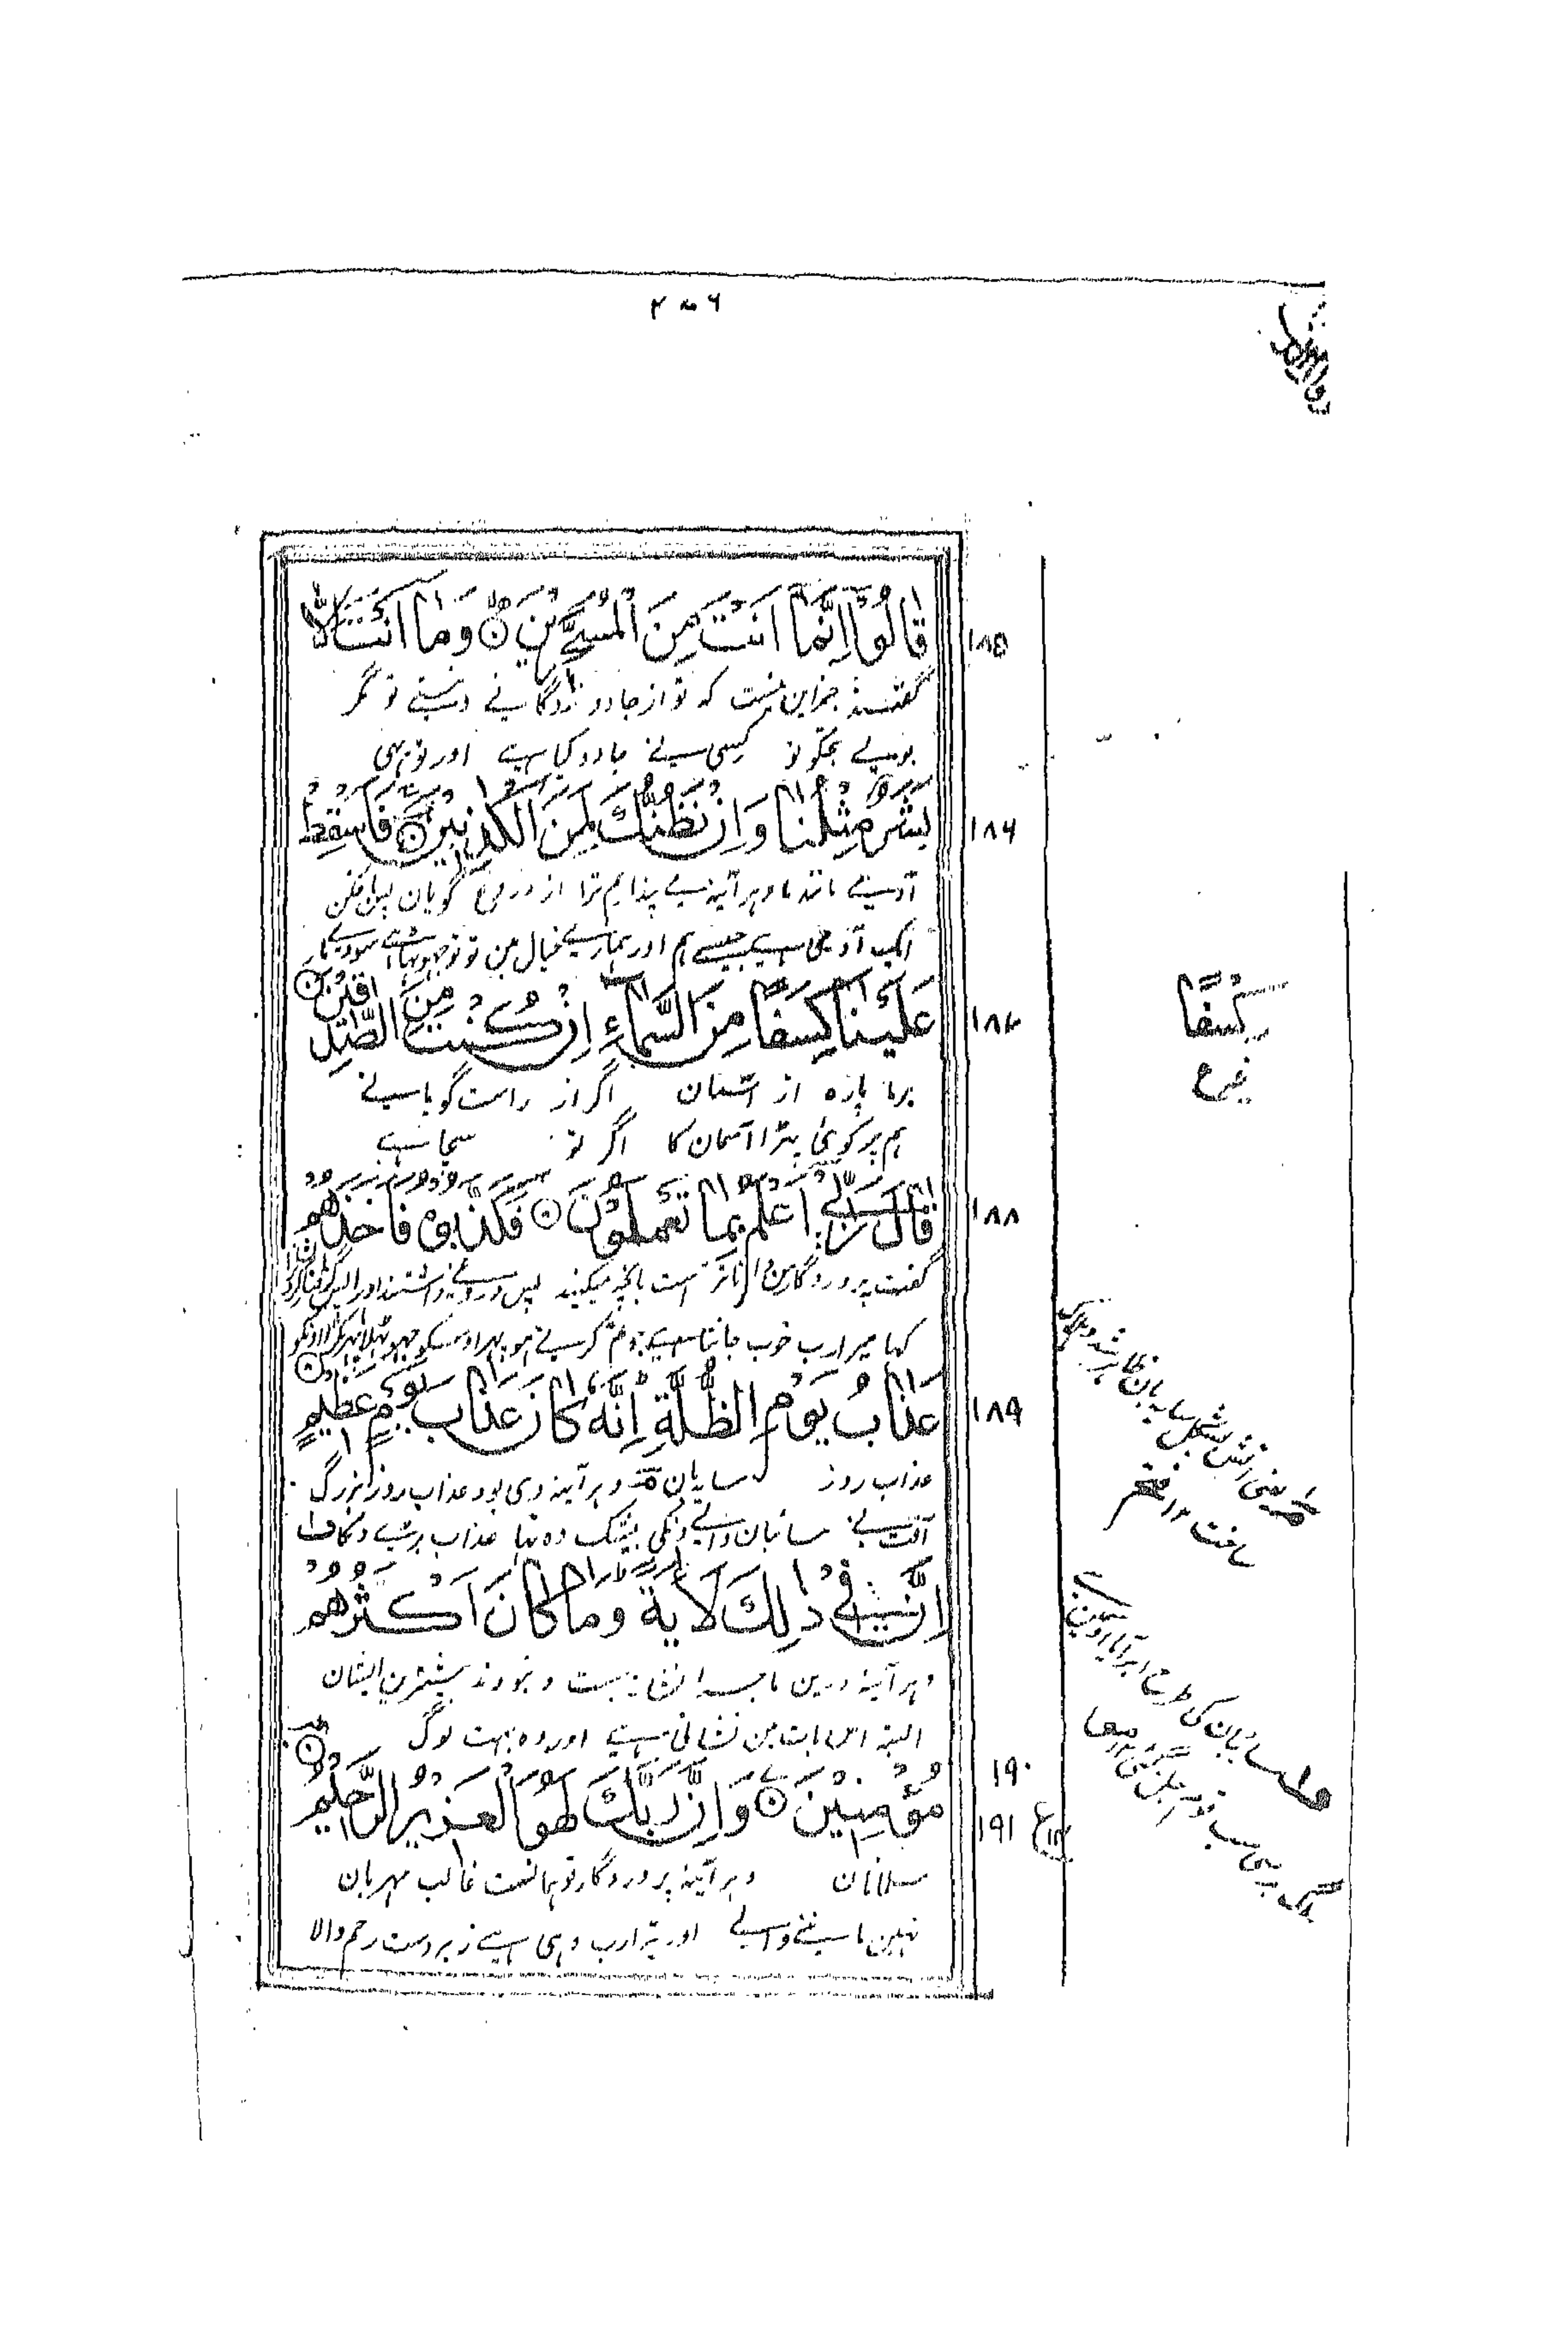 قَالُوْٓا اِنَّمَآ اَنْتَ مِنَ الْمُسَحَّرِيْنَ ۝ وَمَآ اَنْتَ اِلَّا
۱۸۵
گفتند جز این نیست که تو از جادو زدگانے ونیستے تو مگر
بولے تجکو تو کسی نے جادو کیا ہے اور تو یہی
بَشَرٌ مِّثْلُنَا وَاِنْ نَّظُنُّكَ لَمِنَ الْكٰذِبِيْنَ ۝ فَاَسْقِطْ
۱۸۶
آدمے مانند ما وہر آئینہ مے پنداریم ترا از دروغ گویان پس بیفگن
ایک آدمی ہے جیسے ہم اور ہمارے خیال مین تو تو جھوٹا ہے سو دے مار
عَلَيْنَا كِسَفًا مِّنَ السَّمَآءِ اِنْ كُنْتَ مِنَ الصّٰدِقِيْنَ ۝
۱۸۷
كِسْفًا
برما پاره از آسمان اگر از راست گویانے
ہم پر کوئی ٹکڑا آسمان کا اگر تو سچا ہے
قَالَ رَبِّيْٓ اَعْلَمُ بِمَا تَعْمَلُوْنَ ۝ فَكَذَّبُوْهُ فَاَخَذَهُمْ
۱۸۸
گفت پروردگار من داناتر است بآنچہ میکنید پس دروغے داشتند اورا پس گرفتار کرد
کہا میرا رب خوب جانتا ہے جو تم کرتے ہو پہر اوسکو جھوٹھلایا پہر پکڑا اونکو
عَذَابُ يَوْمِ الظُّلَّةِ اِنَّهٗ كَانَ عَذَابَ يَوْمٍ عَظِيْمٍ ۝
۱۸۹
عذاب روز سایہ بان وہر آئینہ وی بود عذاب روز بزرگ
آفت نے سائبان والے دنکی بیشک وہ تہا عذاب بڑے دنکا
اِنَّ فِيْ ذٰلِكَ لَاٰيَةً وَمَا كَانَ اَكْثَرُهُمْ
وہر آئینہ درین ماجرا نشانہ ہست ونبودند بیشترین ایشان
البتہ اس بات مین نشانی ہے اور وہ بہت لوگ
۱۹۰
مُّؤْمِنِيْنَ ۝ وَاِنَّ رَبَّكَ لَهُوَ الْعَزِيْزُ الرَّحِيْمُ ۝
۱۹۱
مسلمانان وہر آئینہ پروردگار تو ہمانست غالب مہربان
نہین ماننے والے اور تیرا رب وہی ہے زبردست رحم والا